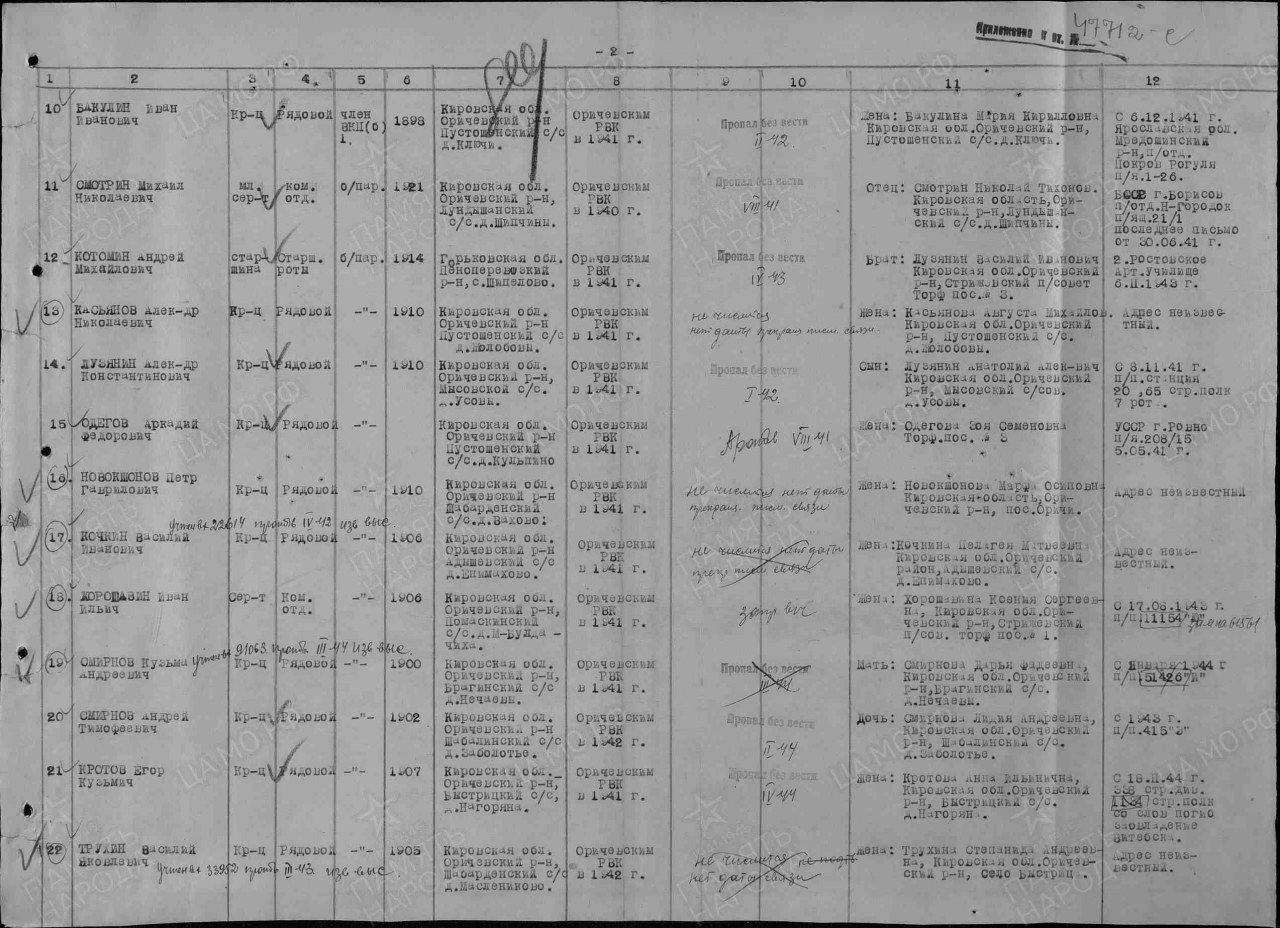 Приложение к вх. № 47712-с
- 2 -
1 2 3 4 5 6 7 8 9 10 11 12
10 ВАКУЛИН Иван Иванович Кр-ц Рядовой член ВКП(б) 1. 1898 Кировская обл. Оричевский р-н Пустошенский с/с д.Ключи. Оричевским РВК в 1941 г. Пропал без вести II-42 Жена: Вакулина Мария Кирилловна Кировская обл.Оричевский р-н, Пустошенский с/с.д.Ключи. С 6.12.1941 г. Ярославская обл. Мредошинский р-н,п/отд. Покров Рогули п/я.1-26.
11 СМОТРИН Михаил Николаевич мл. сер-т ком. отд. б/пар. 1921 Кировская обл. Оричевский р-н, Лундышанский с/с.д.Шипчины. Оричевским РВК в 1940 г. Пропал без вести VIII-41 Отец: Смотрин Николай Тихонов. Кировская область,Оричевский р-н,Лундышанский с/с.д.Шипчины. БССР г.Борисов п/отд.Н-Городок п/ящ.21/1 последнее письмо от 30.06.41 г.
12 КОТОМИН Андрей Михайлович старшина Старш. роты б/пар. 1914 Горьковская обл. Пеноперевозкий р-н,с.Шипелово. Оричевским РВК в 1941 г. Пропал без вести IV-43 Брат: Лузянин Василий Иванович Кировская обл.Оричевский р-н,Стрижовский п/совет Торф пос.№ 3. 2.Ростовское Арт.Училище 6.II.1943 г.
13 КАСЬЯНОВ Алек-др Николаевич Кр-ц Рядовой -"- 1910 Кировская обл. Оричевский р-н Пустошенский с/с д.Жолобовы. Оричевским РВК в 1941 г. не числится нет даты прекращ. писм. связи Жена: Касьянова Августа Михайлов. Кировская обл.Оричевский р-н, Пустошенский с/с. д.Жолобовы. Адрес неизвестный.
14. ЛУЗЯНИН Алек-др Константинович Кр-ц Рядовой -"- 1910 Кировская обл. Оричевский р-н, Мысовской с/с. д.Усовы. Оричевским РВК в 1941 г. Пропал без вести I-42 Сын: Лузянин Анатолий Алек-вич Кировская обл.Оричевский р-н, Мысовский с/сов. д.Усовы. С 8.11.41 г. п/п.станция 20 ,65 стр.полк 7 рот..
15 ОДЕГОВ Аркадий Федорович Кр-ц Рядовой -"- Кировская обл. Оричевский р-н Пустошенский с/с.д.Кульпино Оричевским РВК в 1941 г. VIII-41 Жена: Одегова Зоя Семеновна Торф.пос. № 3 УССР г.Ровно п/я.208/15 5.05.41 г.
16. НОВОКШОНОВ Петр Гаврилович Кр-ц Рядовой -"- 1910 Кировская обл. Оричевский р-н Шабарденский с/с.д.Захово: Оричевским РВК в 1941 г. не числится нет даты прекращ. писм. связи Жена: Новокшонова Марфа Осиповна Кировская-область,Оричевский р-н, пос.Оричи. Адрес неизвестный
17. КОЧКИН Василий Иванович Кр-ц Рядовой -"- 1906 Кировская обл. Оричевский р-н Адышевский с/с д.Епимахово. Оричевским РВК в 1941 г. не числится нет даты прекр писм связи Жена:Кочкина Пелагея Матвеевна Кировская обл.Оричевский район,Адышевский с/с. д.Епимахово. Адрес неизвестный.
учтен вх 22614 пропть IV-42 изв выс.
18. ХОРОШАВИН Иван Ильич Сер-т Ком. отд. -"- 1906 Кировская обл. Оричевский р-н, Помаскинский с/с.д.М-Булдачиха. Оричевским РВК в 1941 г. Жена: Хорошавина Ксения Сергеевна, Кировская обл.Оричевский р-н, Стрижевский п/сов. торф пос.№ 1. С 17.08.1943 г. п/п 11154 "Ш"
19. СМИРНОВ Кузьма Андреевич Кр-ц Рядовой -"- 1900 Кировская обл. Оричевский р-н, Брагинский с/с д.Нечаевы. Оричевским РВК в 1941 г. Пропал без вести III-44 Мать: Смирнова Дарья Фадеевна, Кировская обл.Оричевский р-н,Брагинский с/с. д.Нечаевы. С Января 1944 г п/п 51426 "И"
учтен вх 91063 пропть III-44 изв выс.
20 СМИРНОВ Андрей Тимофеевич Кр-ц Рядовой -"- 1902 Кировская обл. Оричевский р-н Шабалинский с/с д.Заболотье. Оричевским РВК в 1942 г. Пропал без вести II-44 Дочь: Смирнова Лидия Андреевна, Кировская обл.Оричевский р-н, Шабалинский с/с. д.Заболотье. с 1943 г. п/п.415"З"
21 КРОТОВ Егор Кузьмич Кр-ц Рядовой -"- 1907 Кировская обл. Оричевский р-н, Быстрицкий с/с, д.Нагоряна. Оричевским РВК в 1941 г. Пропал без вести IV-44 Жена: Кротова Анна Ильинична, Кировская обл.Оричевский р-н, Быстрицкий с/с. д.Нагоряна. С 18.II.44 г. 338 стр.див. 1134 стр.полк со слов погиб заовладение Витебска.
22 ТРУХИН Василий Яковлевич Кр-ц Рядовой -"- 1905 Кировская обл. Оричевский р-н, Шабарденский с/с д.Маслениково. Оричевским РВК в 1942 г. не числится нет даты связи Жена: Трухина Степанида Андреевна, Кировская обл.Оричевский р-н, Село Быстриц. Адрес неизвестный.
учтен вх 33952 пропть III-43 изв выс.